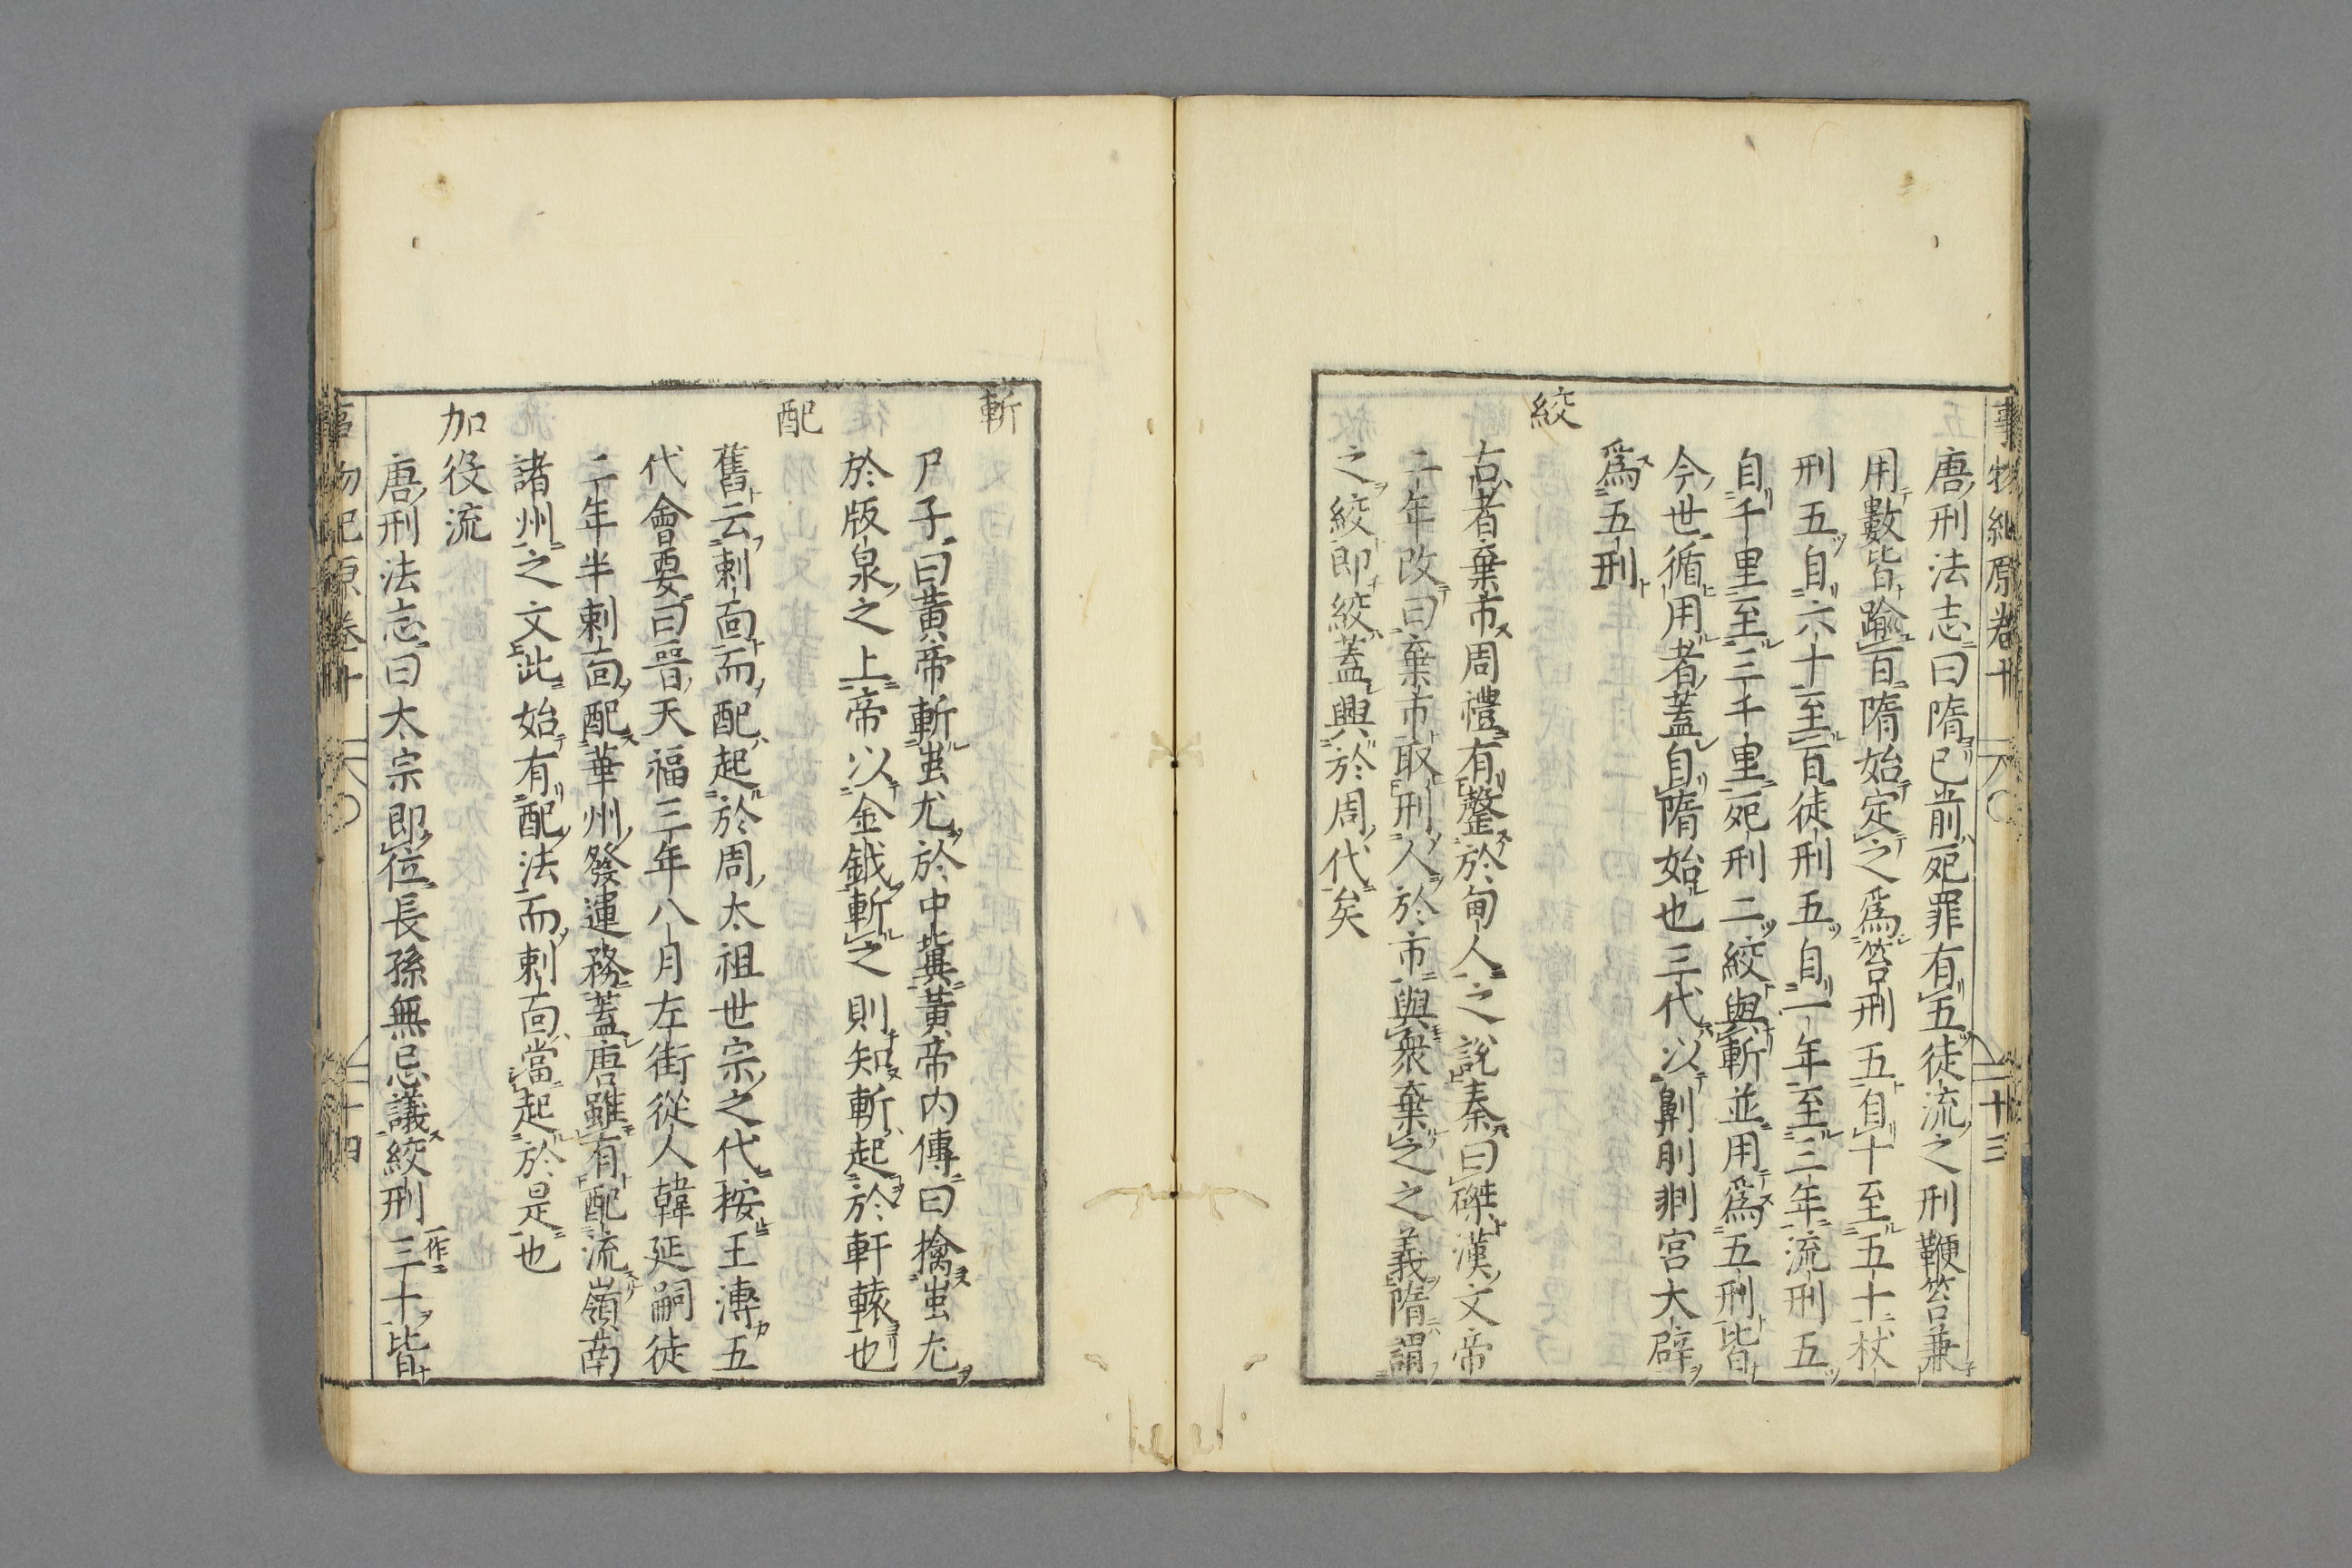 事物紀原卷十 二十三
唐刑法志曰隋已前死罪有五徒流之刑鞭笞兼
用數皆踰百隋始定之爲笞刑五自十至五十杖
刑五自六十至百徒刑五自一年至三年流刑五
自千里至三千里死刑二絞與斬並用爲五刑皆
今世循用者蓋自隋始也三代以劓刖剕宮大辟
爲五刑
絞
古者棄市周禮有磬於甸人之說秦曰磔漢文帝
二年改曰棄市取刑人於市與衆棄之之義隋謂
之絞卽絞蓋興於周代矣
斬
尸子曰黃帝斬蚩尤於中冀黃帝內傳曰擒蚩尤
於版泉之上帝以金鉞斬之則知斬起於軒轅也
配
舊云刺面而配起於周太祖世宗之代按王溥五
代會要曰晉天福三年八月左街從人韓延嗣徒
二年半刺面配華州發運務蓋唐雖有配流嶺南
諸州之文此始有配法而刺面當起於是也
加役流
唐刑法志曰太宗卽位長孫無忌議絞刑三十皆
一作二
事物紀原卷十 二十四